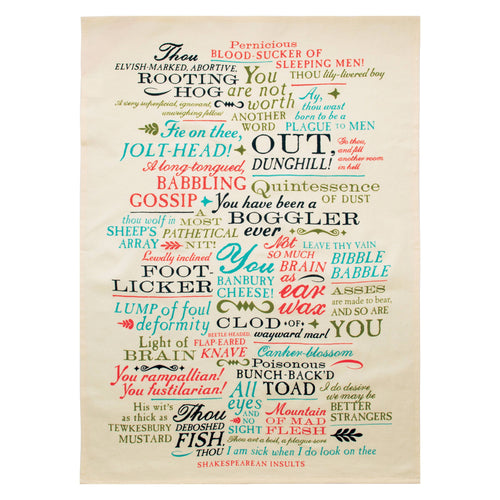 Pernicious
BLOOD-SUCKER OF
SLEEPING MEN!
Thou
ELVISH-MARKED, ABORTIVE,
ROOTING
HOG
You
are not
worth
ANOTHER
WORD
THOU lily-livered boy
A very superficial, ignorant,
unweighing fellow
Ay,
thou wast
born to be a
PLAGUE TO MEN
Fie on thee,
JOLT-HEAD!
OUT,
DUNGHILL!
Go thou,
and fill
another room
in hell
A long-tongued,
BABBLING
GOSSIP
Quintessence
OF DUST
You have been a
BOGGLER
ever
thou wolf in
SHEEP'S
ARRAY
A
MOST
PATHETICAL
NIT!
Lewdly inclined
FOOT-
LICKER
You
BANBURY
CHEESE!
Not
SO MUCH
BRAIN
as
ear
wax
LEAVE THY VAIN
BIBBLE
BABBLE
ASSES
are made to bear,
AND SO ARE
YOU
LUMP of foul
deformity
CLOD OF
wayward marl
Light of
BRAIN
BEETLE-HEADED,
FLAP-EARED
KNAVE
Canker-blossom
Poisonous
BUNCH-BACK'D
TOAD
You rampallian!
You fustilarian!
All
eyes
AND NO
SIGHT
I do desire
we may be
BETTER
STRANGERS
His wit's
as thick as
TEWKESBURY
MUSTARD
Thou
DEBOSHED
FISH,
THOU
Mountain
OF MAD
FLESH
Thou art a boil, a plague-sore
I am sick when I do look on thee
SHAKESPEAREAN INSULTS